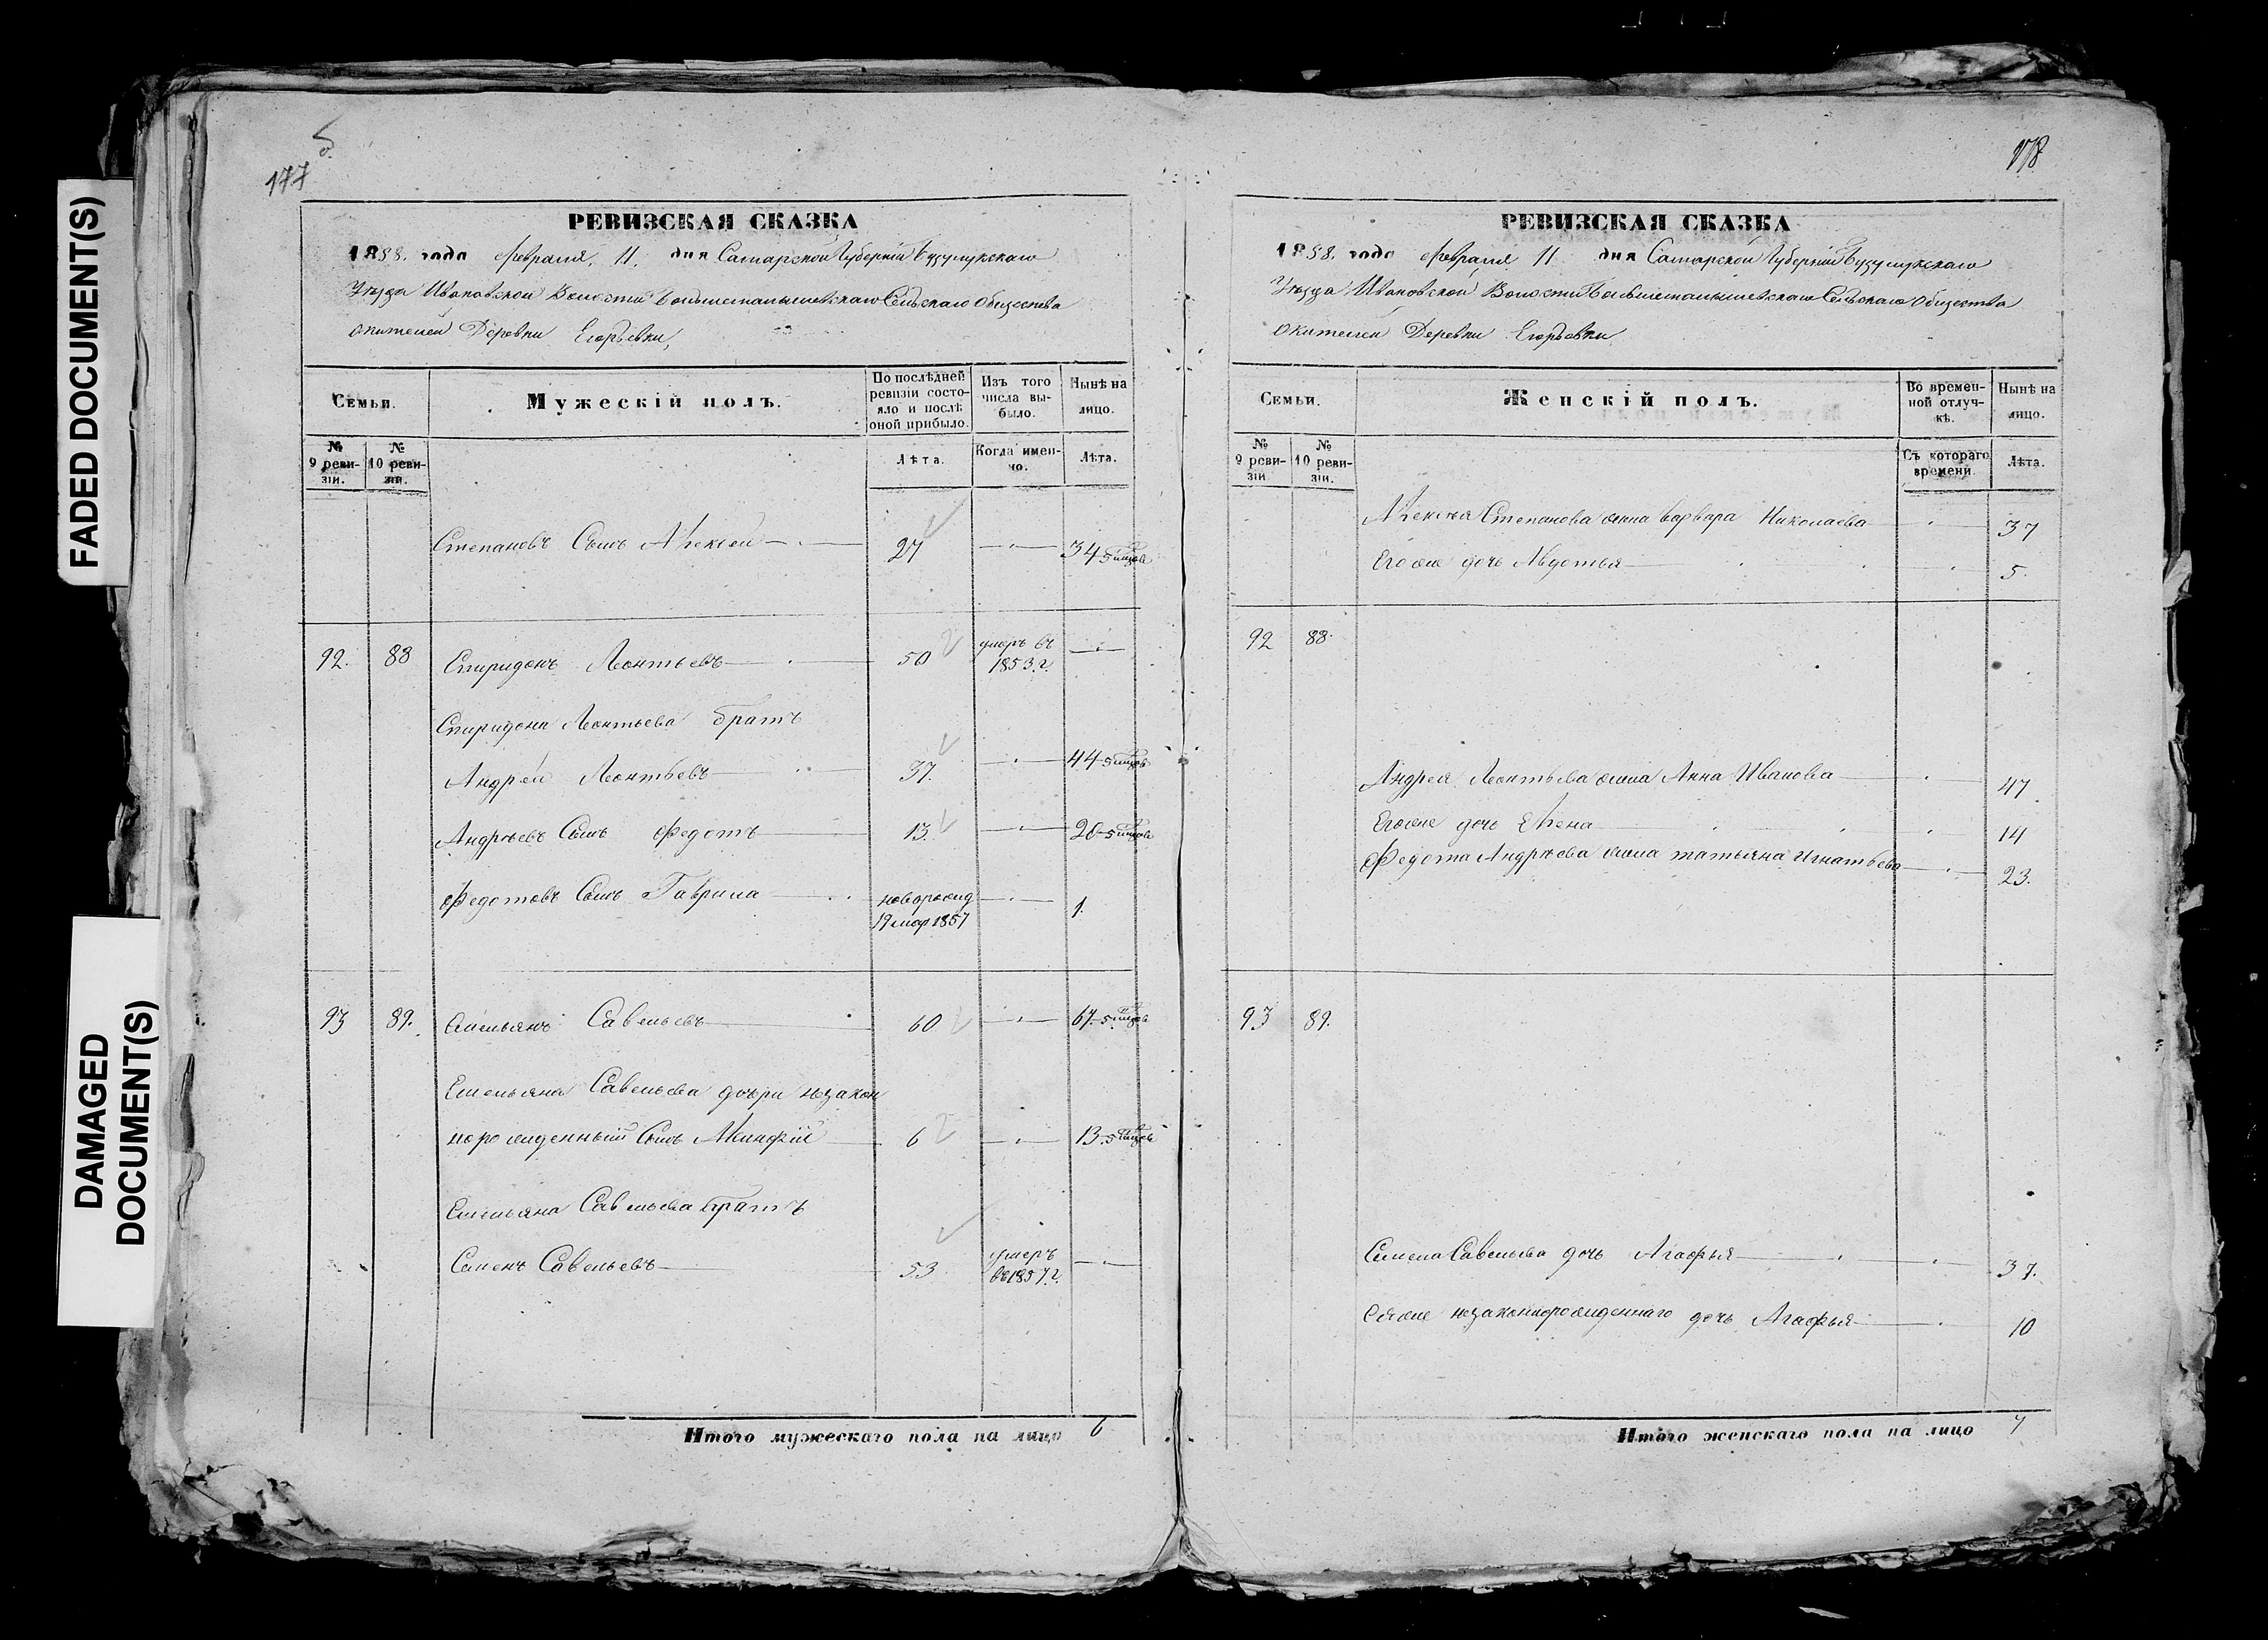 FADED DOCUMENT(S)
DAMAGED
DOCUMENT(S)
177
РЕВИЗСКАЯ СКАЗКА
1858. года Февраля. 11. дня Самарской Губерніи Бузулукскаго
Уѣзда Ивановской Волости Сельскаго Общества
жителей Деревни Егорьевки,
Семьи.
Мужескій полъ.
По послѣдней ревизіи состояло и послѣ оной прибыло.
Изъ того числа выбыло.
Нынѣ на лицо.
№ 9 ревизіи.
№ 10 ревизіи.
Лѣта.
Когда именно.
Лѣта.
Степановъ Сынъ Алексей 27 34
92. 88 Спиридонъ Леонтьевъ 50 умеръ въ 1853.г.
Спиридона Леонтьева братъ
Андрей Леонтьевъ 37. 44
Андрѣевъ Сынъ Федотъ 13. 20
Федотовъ Сынъ Гаврила новорожд 19 мар 1857 1.
93 89. Емельянъ Савельевъ 60 67.
Емельяна Савельева дочри незакон
норожденный Сынъ 6 13.
Емельяна Савельева братъ
Семенъ Савельевъ 53 умеръ въ 1857.г.
Итого мужескаго пола на лицо 6
178
РЕВИЗСКАЯ СКАЗКА
1858. года Февраля 11 дня Самарской Губерніи Бузулукскаго
Уѣзда Ивановской Волости Сельскаго Общества
жителей Деревни Егорьевки
Семьи.
Женскій полъ.
Во временной отлучкѣ.
Нынѣ на лицо.
№ 9 ревизіи
№ 10 ревизіи.
Съ котораго времени.
Лѣта.
Алексѣя Степанова жена Варвара Николаева 37
Его же дочь Авдотья 5.
92 88.
Андрея Леонтьева жена Анна Иванова 47
Его же дочь Елена 14
Федота Андрѣева жена татьяна Игнатьева 23.
93 89.
Семена Савельева дочь Агафья 37.
Ея же незаконнорожденнаго дочь Агафья 10
Итого женскаго пола на лицо 7